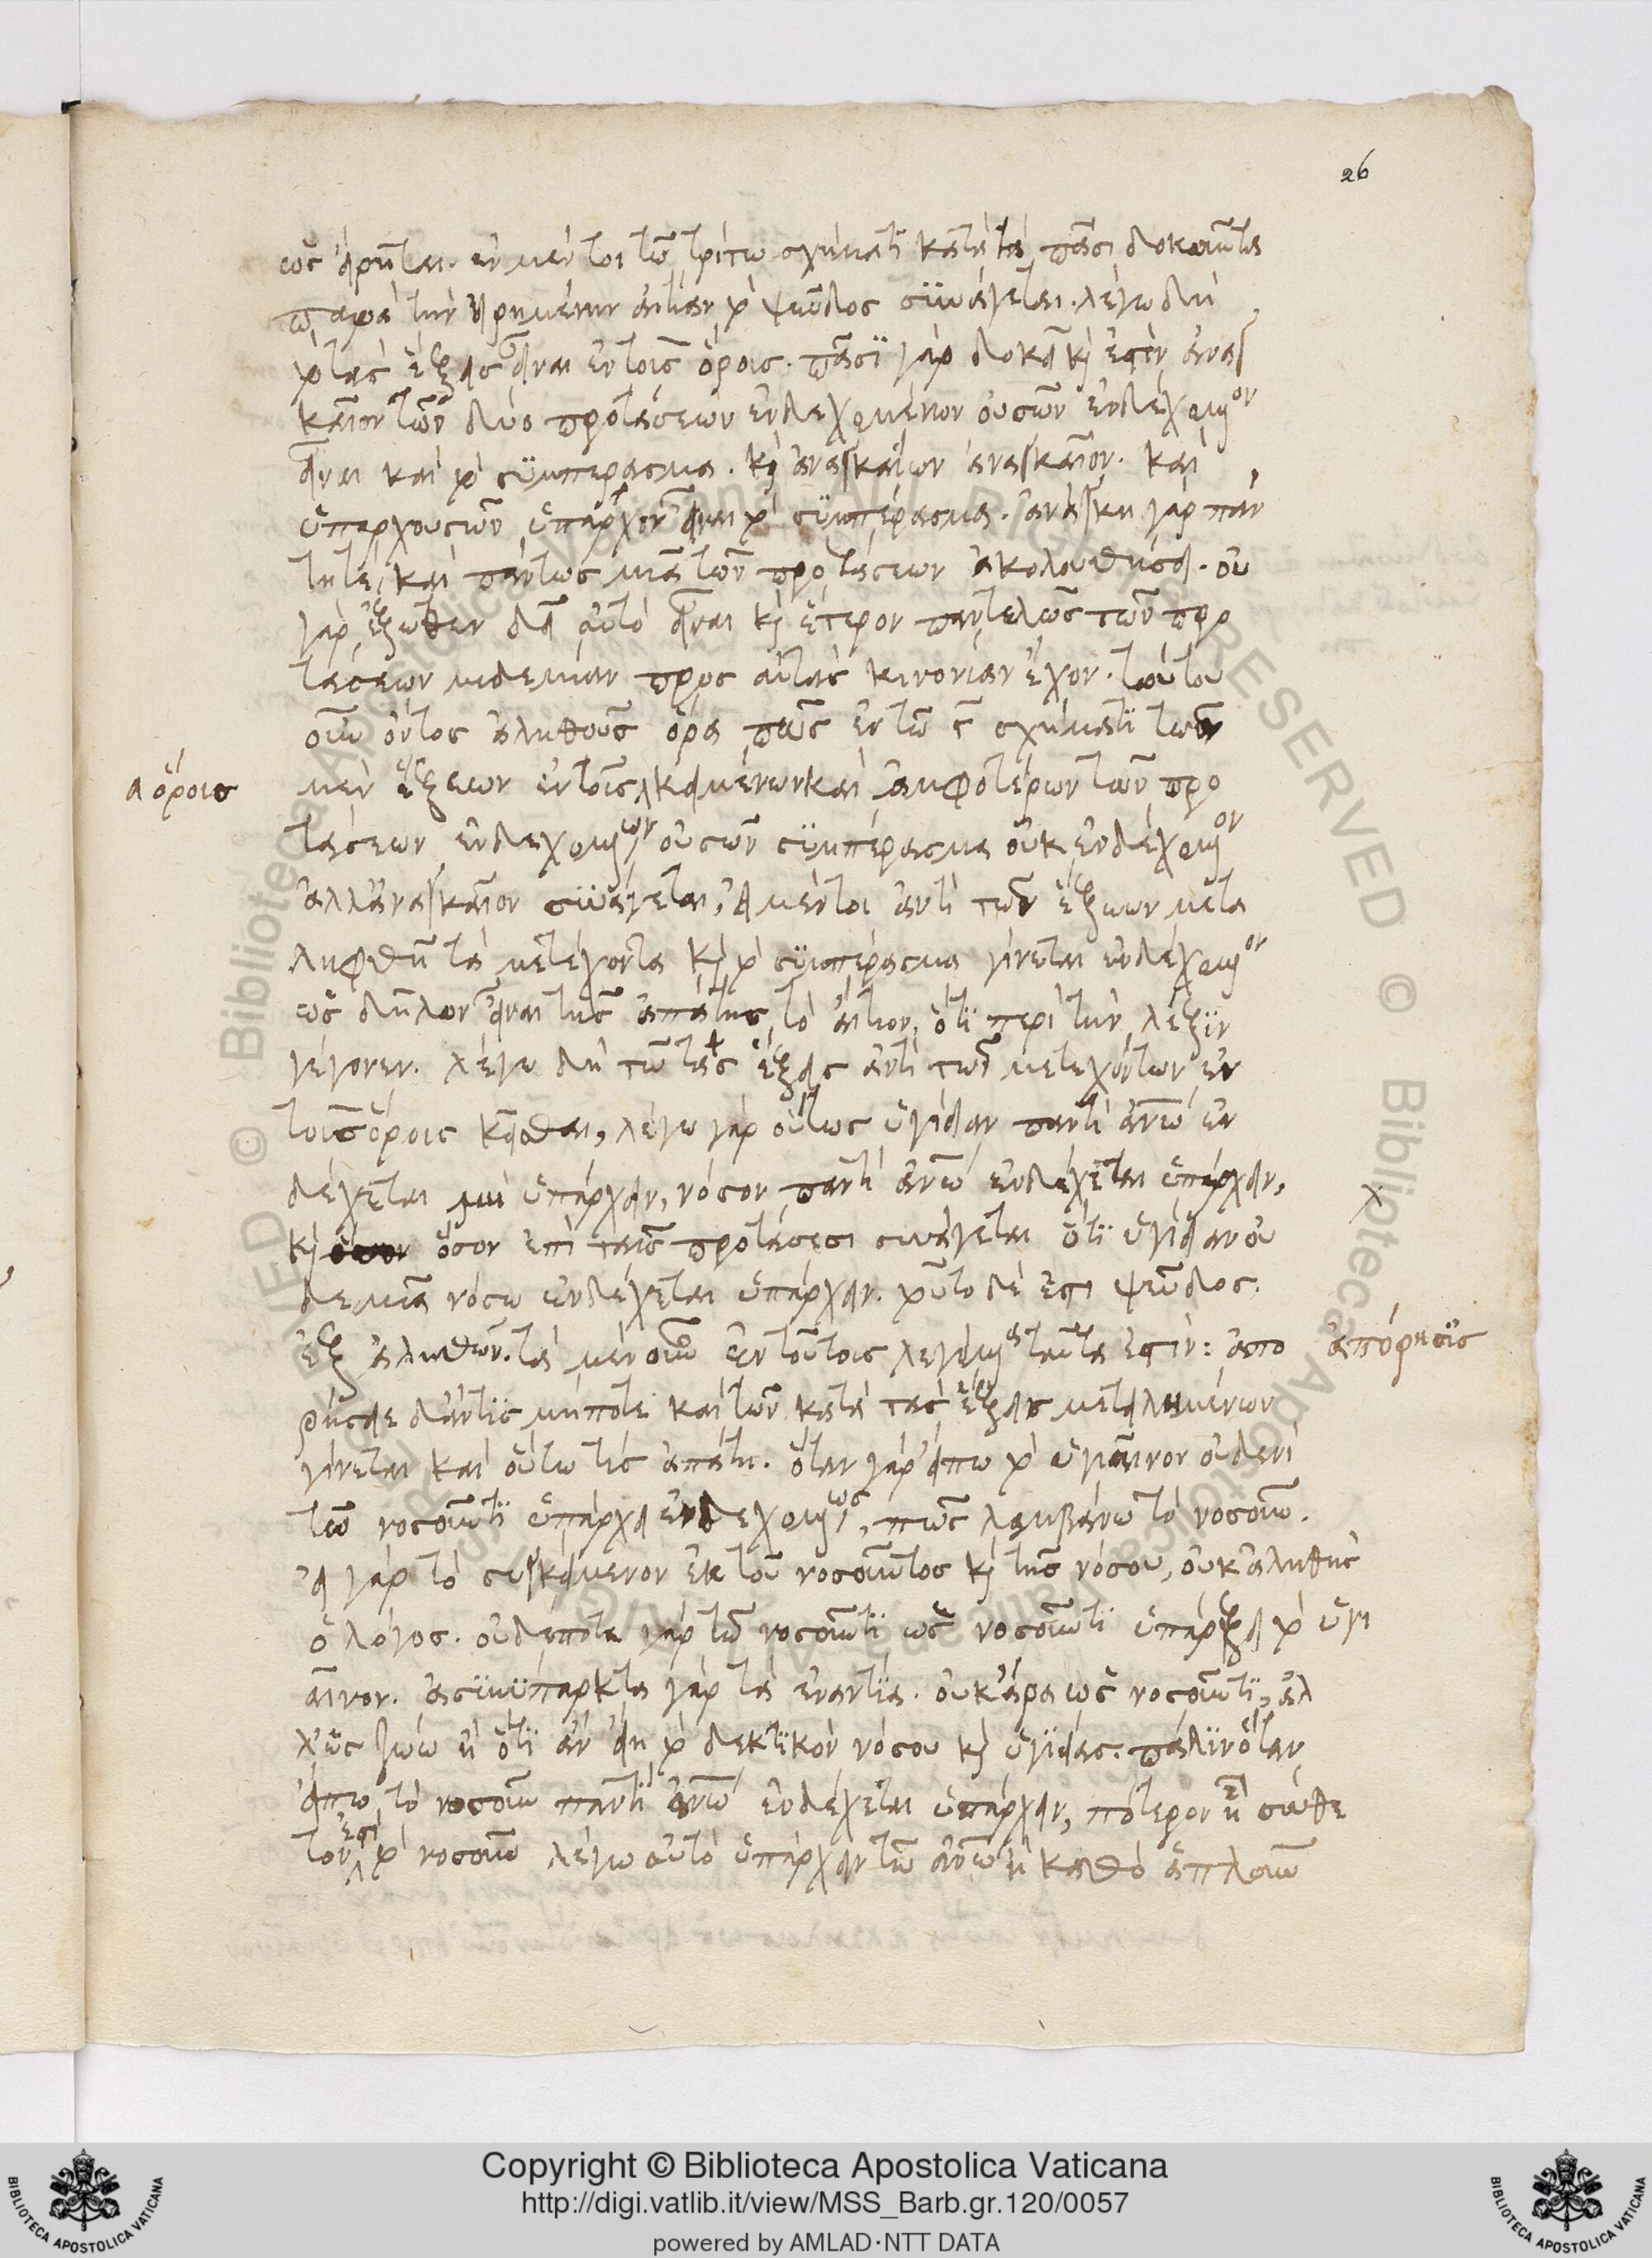 26
ὡς εἴρηται. ἐν μέν τοι τῶ τρίτω σχήματι κατὰ τὰ πᾶσι δοκοῦντα
παρὰ τὴν εἰρημένην αἰτίαν τὸ ψεῦδος συνάγεται. λέγω δὴ
τὸ τὰς ἕξεις εἶναι ἐν τοῖς ὅροις. πᾶσι γὰρ δοκεῖ κ(αὶ) ἐστὶν ἀναγ
καῖον τῶν δύο προτάσεων ἐνδεχομένων οὐσῶν ἐνδεχόμενον
εἶναι καὶ τὸ συμπέρασμα. κ(αὶ) ἀναγκαίων ἀναγκαῖον. καὶ
ὑπαρχουσῶν ὑπάρχον εἶναι τὸ συμπέρασμα. ἀνάγκη γὰρ πάν
τητε, καὶ πάντως μιᾶ τῶν προτάσεων ἀκολουθήσει. οὐ
γὰρ ἔξωθεν δεῖ αὐτὸ εἶναι κ(αὶ) ἕτερον παντελῶς τῶν προ
τάσεων μηδεμίαν πρὸς αὐτὰς κινονίαν ἔχον. τούτου
οὖν ὄντος ἀληθοῦς ὅρα πῶς ἐν τῶ ϛ σχήματι τῶν
μὲν ἕξεων ἐν τοῖς κειμένων καὶ ἀμφοτέρων τῶν προ
ὅροις
τάσεων ἐνδεχομένων οὐσῶν συμπέρασμα οὐκ ἐνδεχόμενον
ἀλλ' ἀναγκαῖον συνάγεται, εἰ μέντοι ἀντὶ τῶν ἕξεων μετα
ληφθῆ τὰ μετέχοντα κ(αὶ) τὸ συμπέρασμα γίνεται ἐνδεχόμενον
ὡς δῆλον εἶναι τῆς ἀπάτης τὸ αἴτιον, ὅτι περὶ τὴν λέξιν
γέγονεν. λέγω δὴ τῶ τὰς ἕξεις ἀντὶ τῶν μετεχόντων ἐν
τοῖς ὅροις κεῖσθαι, λέγω γὰρ οὕτως ὑγίειαν παντὶ ἀν(θρώπ)ω ἐν
δέχεται μὴ ὑπάρχειν, νόσον παντὶ ἀν(θρώπ)ω ἐνδέχεται ὑπάρχειν,
κ(αὶ) ὅσον ἐπὶ ταῖς προτάσεσι συνάγεται ὅτι ὑγίεια οὐ
δεμιᾶ νόσω ἐνδέχεται ὑπάρχειν. τοῦτο δέ ἐστι ψεῦδος.
ἐξ ἀληθῶν. τὰ μὲν οὖν ἐν τούτοις λεγόμενα ταῦτα ἐστίν: ἀπο
ἀπόρησις
ρήσειε δ' ἄν τις μήποτε καὶ τῶν κατὰ τὰς ἕξεις μετειλημμένων
γίνεται καὶ οὕτω τὶς ἀπάτη. ὅταν γὰρ εἴπω τὸ ὑγιαῖνον οὐδενὶ
τῶ νοσοῦντι ὑπάρχει ἐνδεχομένως, πῶς λαμβάνω τὸ νοσοῦν.
εἰ γὰρ τὸ συγκείμενον ἐκ τοῦ νοσοῦντος κ(αὶ) τῆς νόσου, οὐκ ἀληθὴς
ὁ λόγος. οὐδέποτε γὰρ τῶ νοσοῦντι ὡς νοσοῦντι ὑπάρξει τὸ ὑγι
αῖνον. ἀσυνύπαρκτα γὰρ τὰ ἐναντία. οὐκ ἄρα ὡς νοσοῦντι, ἀλ
λ' ὡς ζώω ἢ ὅτι ἂν εἴη τὸ δεκτικὸν νόσου κ(αὶ) ὑγιείας. πάλιν ὅταν
εἴπω τὸ νοσοῦν παντὶ ἀν(θρώπ)ω ἐνδέχεται ὑπάρχειν, πότερον ἢ σύνθε
τον ἐστὶ τὸ νοσοῦν λέγω αὐτὸ ὑπάρχειν τῶ ἀν(θρώπ)ω ἢ καθὸ ἁπλοῦν
Copyright © Biblioteca Apostolica Vaticana
http://digi.vatlib.it/view/MSS_Barb.gr.120/0057
powered by AMLAD·NTT DATA
BIBLIOTECA APOSTOLICA VATICANA
BIBLIOTECA APOSTOLICA VATICANA